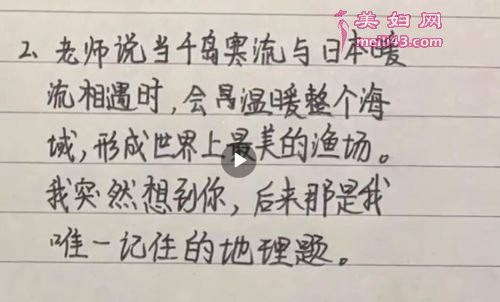 美妇网
meifu43.com
2、老师说当千岛寒流与日本暖
流相遇时，会温暖整个海
域，形成世界上最美的渔场。
我突然想到你，后来那是我
唯一记住的地理题。